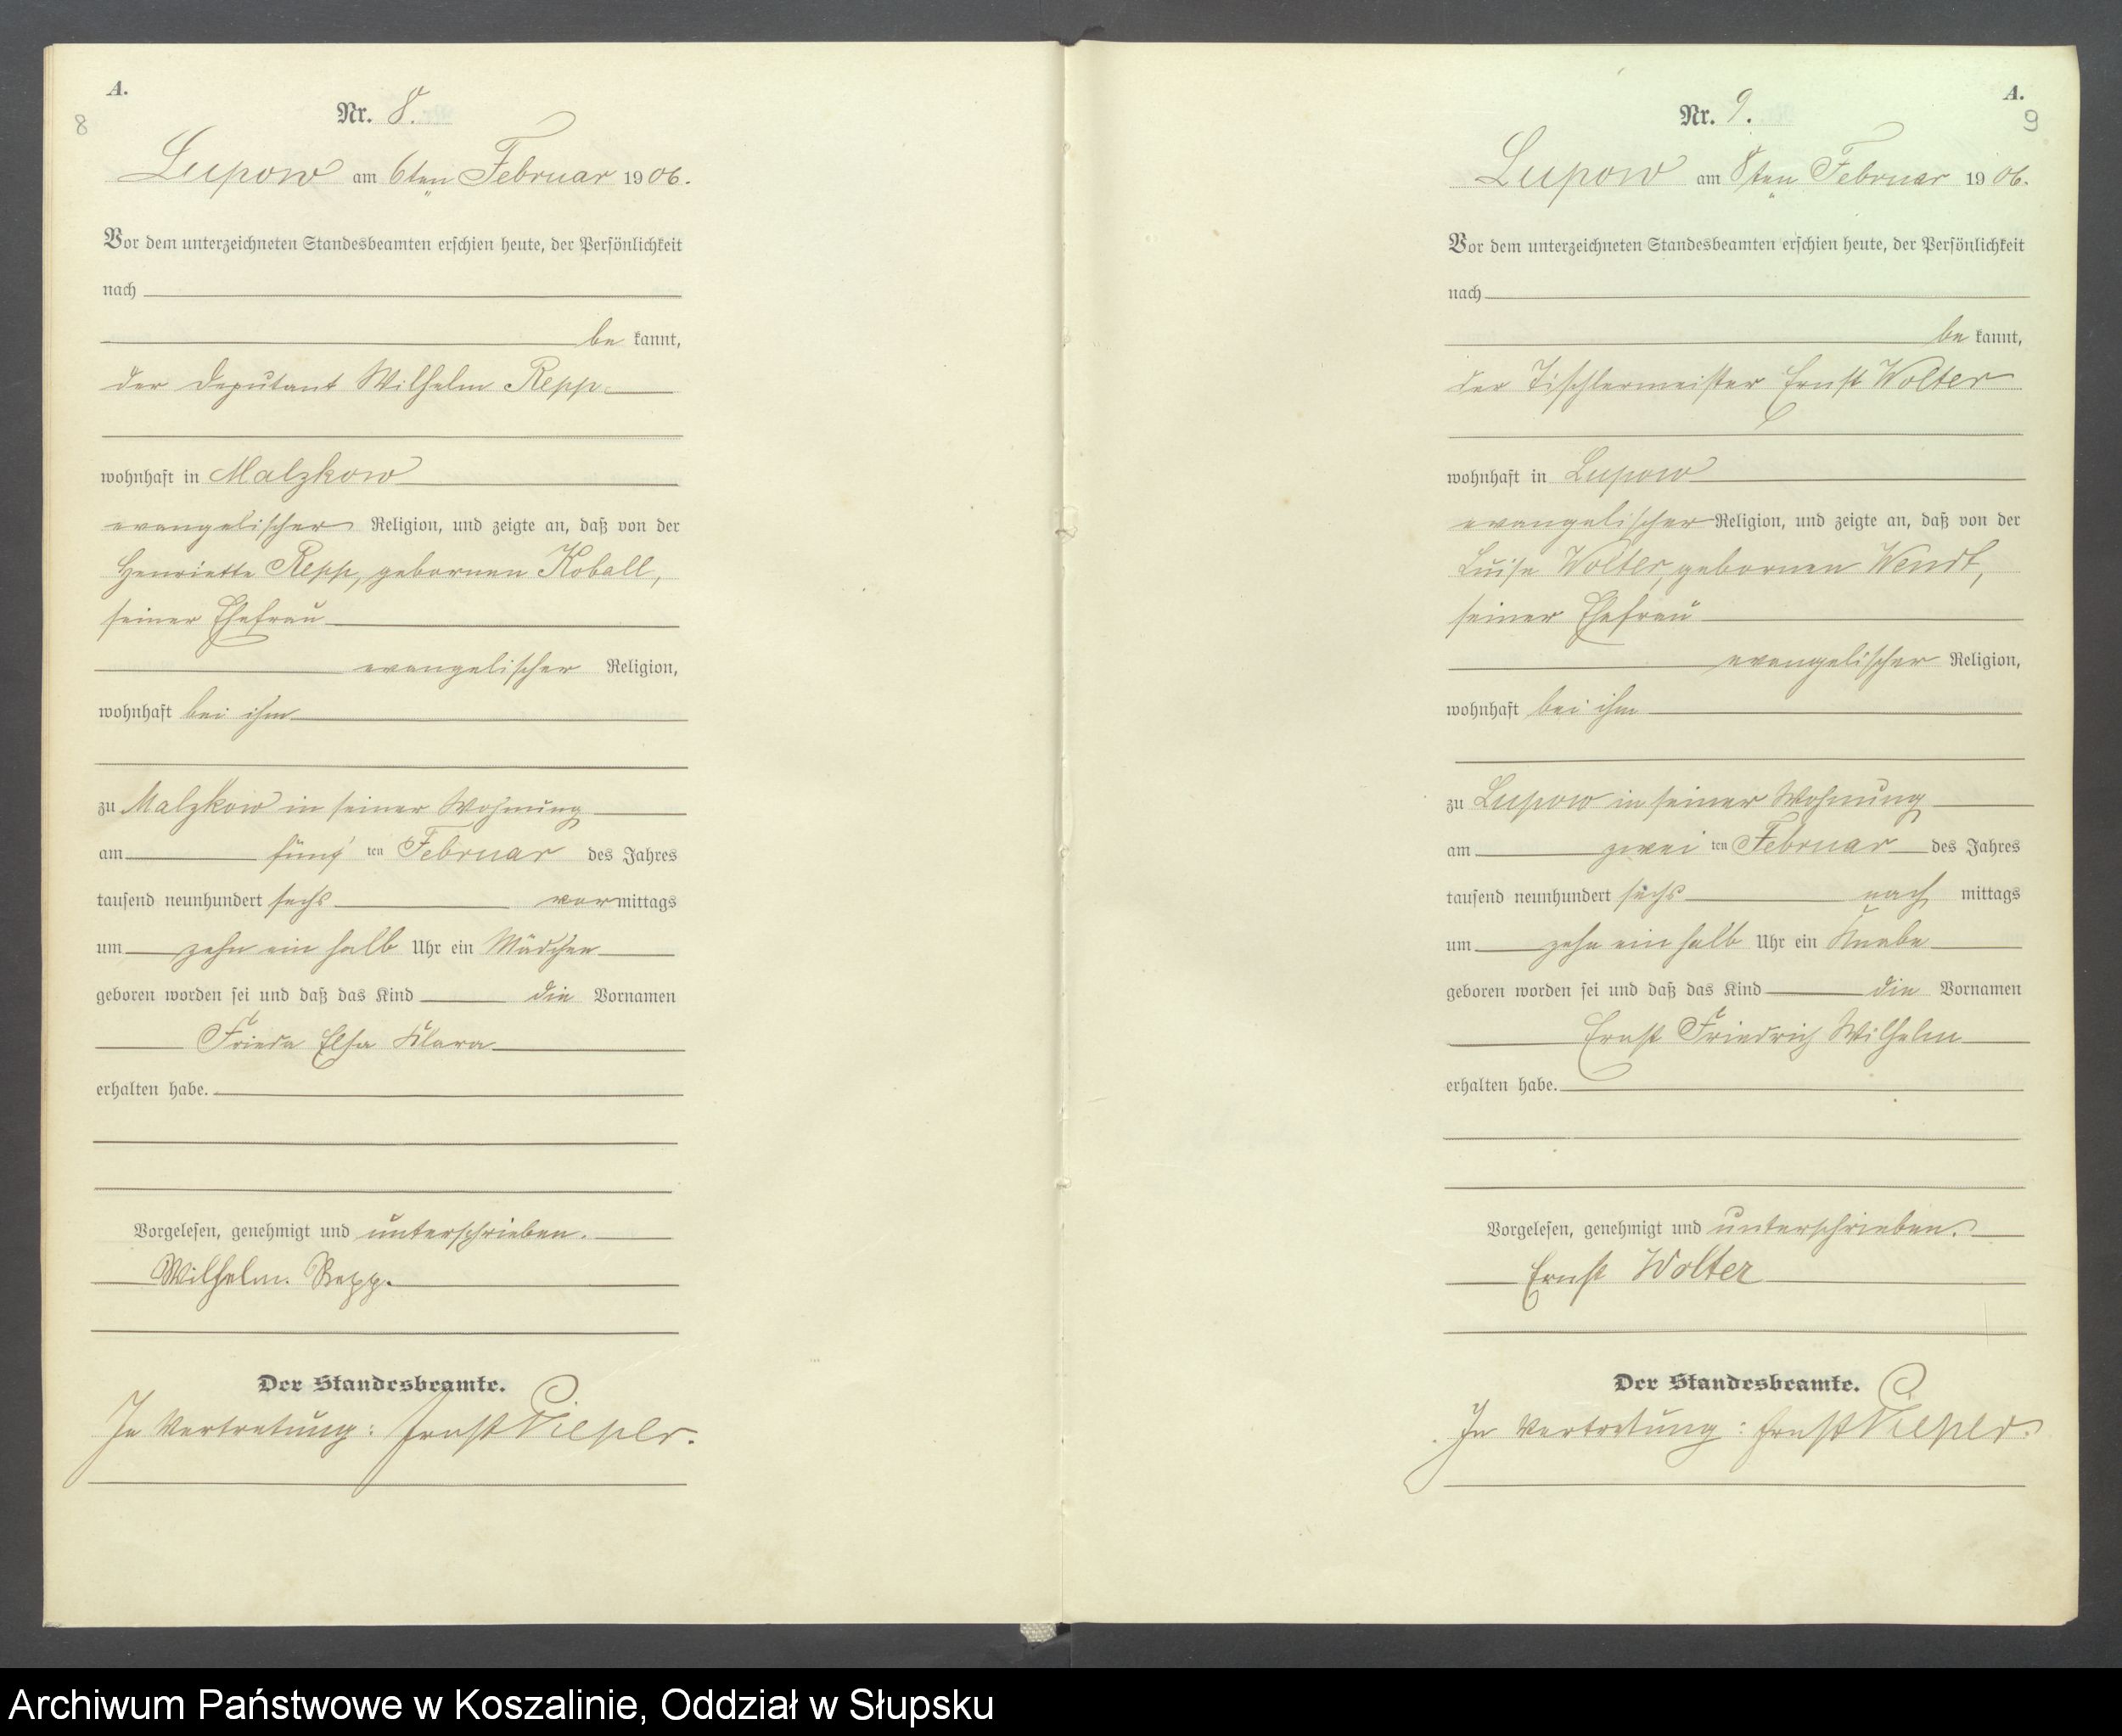 A.
8
Nr. 8.
Lupow am 6ten Februar 1906.
Vor dem unterzeichneten Standesbeamten erschien heute, der Persönlichkeit
nach
be kannt,
der Deputant Wilhelm Repp
wohnhaft in Malzkow
evangelischer Religion, und zeigte an, daß von der
Henriette Repp, gebornen Koball,
seiner Ehefrau
evangelischer Religion,
wohnhaft bei ihm
zu Malzkow in seiner Wohnung
am fünf ten Februar des Jahres
tausend neunhundert sechs vormittags
um zehn ein halb Uhr ein Mädchen
geboren worden sei und daß das Kind die Vornamen
Frieda Elsa Klara
erhalten habe.
Vorgelesen, genehmigt und unterschrieben.
Wilhelm. Repp.
Der Standesbeamte.
In Vertretung: Ernst Pieper.
A.
9
Nr. 9.
Lupow am 8ten Februar 1906.
Vor dem unterzeichneten Standesbeamten erschien heute, der Persönlichkeit
nach
be kannt,
der Tischlermeister Ernst Wolter
wohnhaft in Lupow
evangelischer Religion, und zeigte an, daß von der
Luise Wolter, gebornen Wendt,
seiner Ehefrau
evangelischer Religion,
wohnhaft bei ihm
zu Lupow in seiner Wohnung
am zwei ten Februar des Jahres
tausend neunhundert sechs nach mittags
um zehn ein halb Uhr ein Knabe
geboren worden sei und daß das Kind die Vornamen
Ernst Friedrich Wilhelm
erhalten habe.
Vorgelesen, genehmigt und unterschrieben.
Ernst Wolter
Der Standesbeamte.
In Vertretung: Ernst Pieper.
Archiwum Państwowe w Koszalinie, Oddział w Słupsku